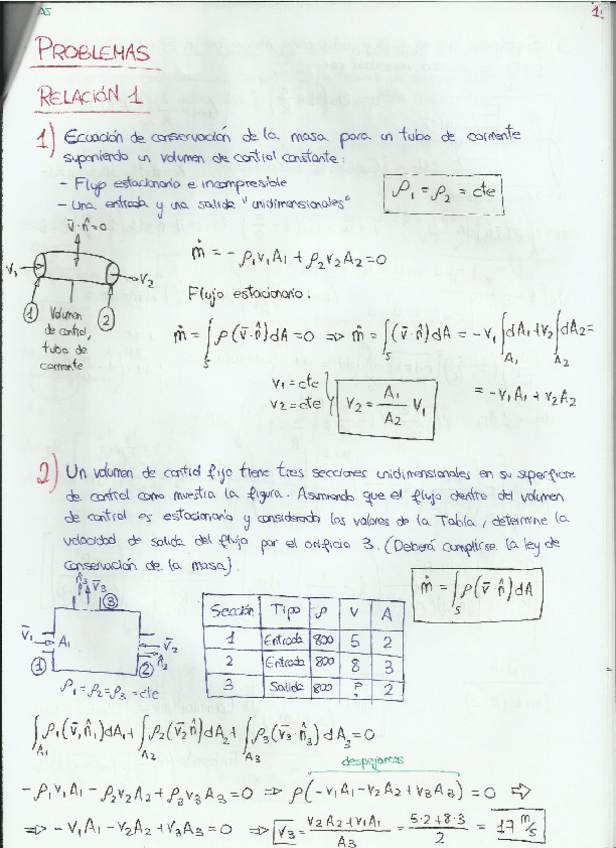 AS
1.
PROBLEMAS
RELACIÓN 1
1) Ecuación de conservación de la masa para un tubo de corriente
suponiendo un volumen de control constante:
- Flujo estacionario e incompresible
- Una entrada y una salida "unidimensionales"
ρ₁ = ρ₂ = cte
v̄·n̂=0
V₁
V₂
1
2
Volumen
de control,
tubo de
corriente
ṁ = -ρ₁v₁A₁ + ρ₂v₂A₂ = 0
Flujo estacionario:
ṁ = ∫_S ρ(v̄·n̂)dA = 0 ⇒ ṁ = ∫_S (v̄·n̂)dA = -v₁∫_A₁ dA₁ + v₂∫_A₂ dA₂ =
= -v₁A₁ + v₂A₂
v₁ = cte
v₂ = cte
v₂ = A₁/A₂ v₁
2) Un volumen de control fijo tiene tres secciones unidimensionales en su superficie
de control como muestra la figura. Asumiendo que el flujo dentro del volumen
de control es estacionario y considerando los valores de la Tabla, determine la
velocidad de salida del flujo por el orificio 3. (Deberá cumplirse la ley de
conservación de la masa).
ṁ = ∫_S ρ(v̄·n̂)dA
n̂₃
v̄₃
3
v̄₁
A₁
1
v̄₂
n̂₂
2
ρ₁=ρ₂=ρ₃=cte
Sección Tipo ρ V A
1 Entrada 800 5 2
2 Entrada 800 8 3
3 Salida 800 ? 2
∫_A₁ ρ₁(v̄₁n̂₁)dA₁ + ∫_A₂ ρ₂(v̄₂n̂)dA₂ + ∫_A₃ ρ₃(v̄₃·n̂₃)dA₃ = 0
despejamos
-ρ₁v₁A₁ - ρ₂v₂A₂ + ρ₃v₃A₃ = 0 ⇒ ρ(-v₁A₁ - v₂A₂ + v₃A₃) = 0 ⇒
⇒ -v₁A₁ - v₂A₂ + v₃A₃ = 0 ⇒ v₃ = (v₂A₂ + v₁A₁)/A₃ = (5·2+8·3)/2 = 17 m/s